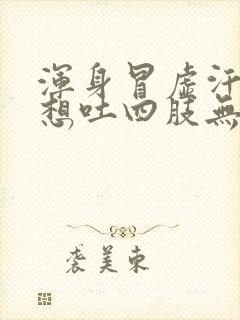 渾身冒虛汗
想吐四肢無
袭美东